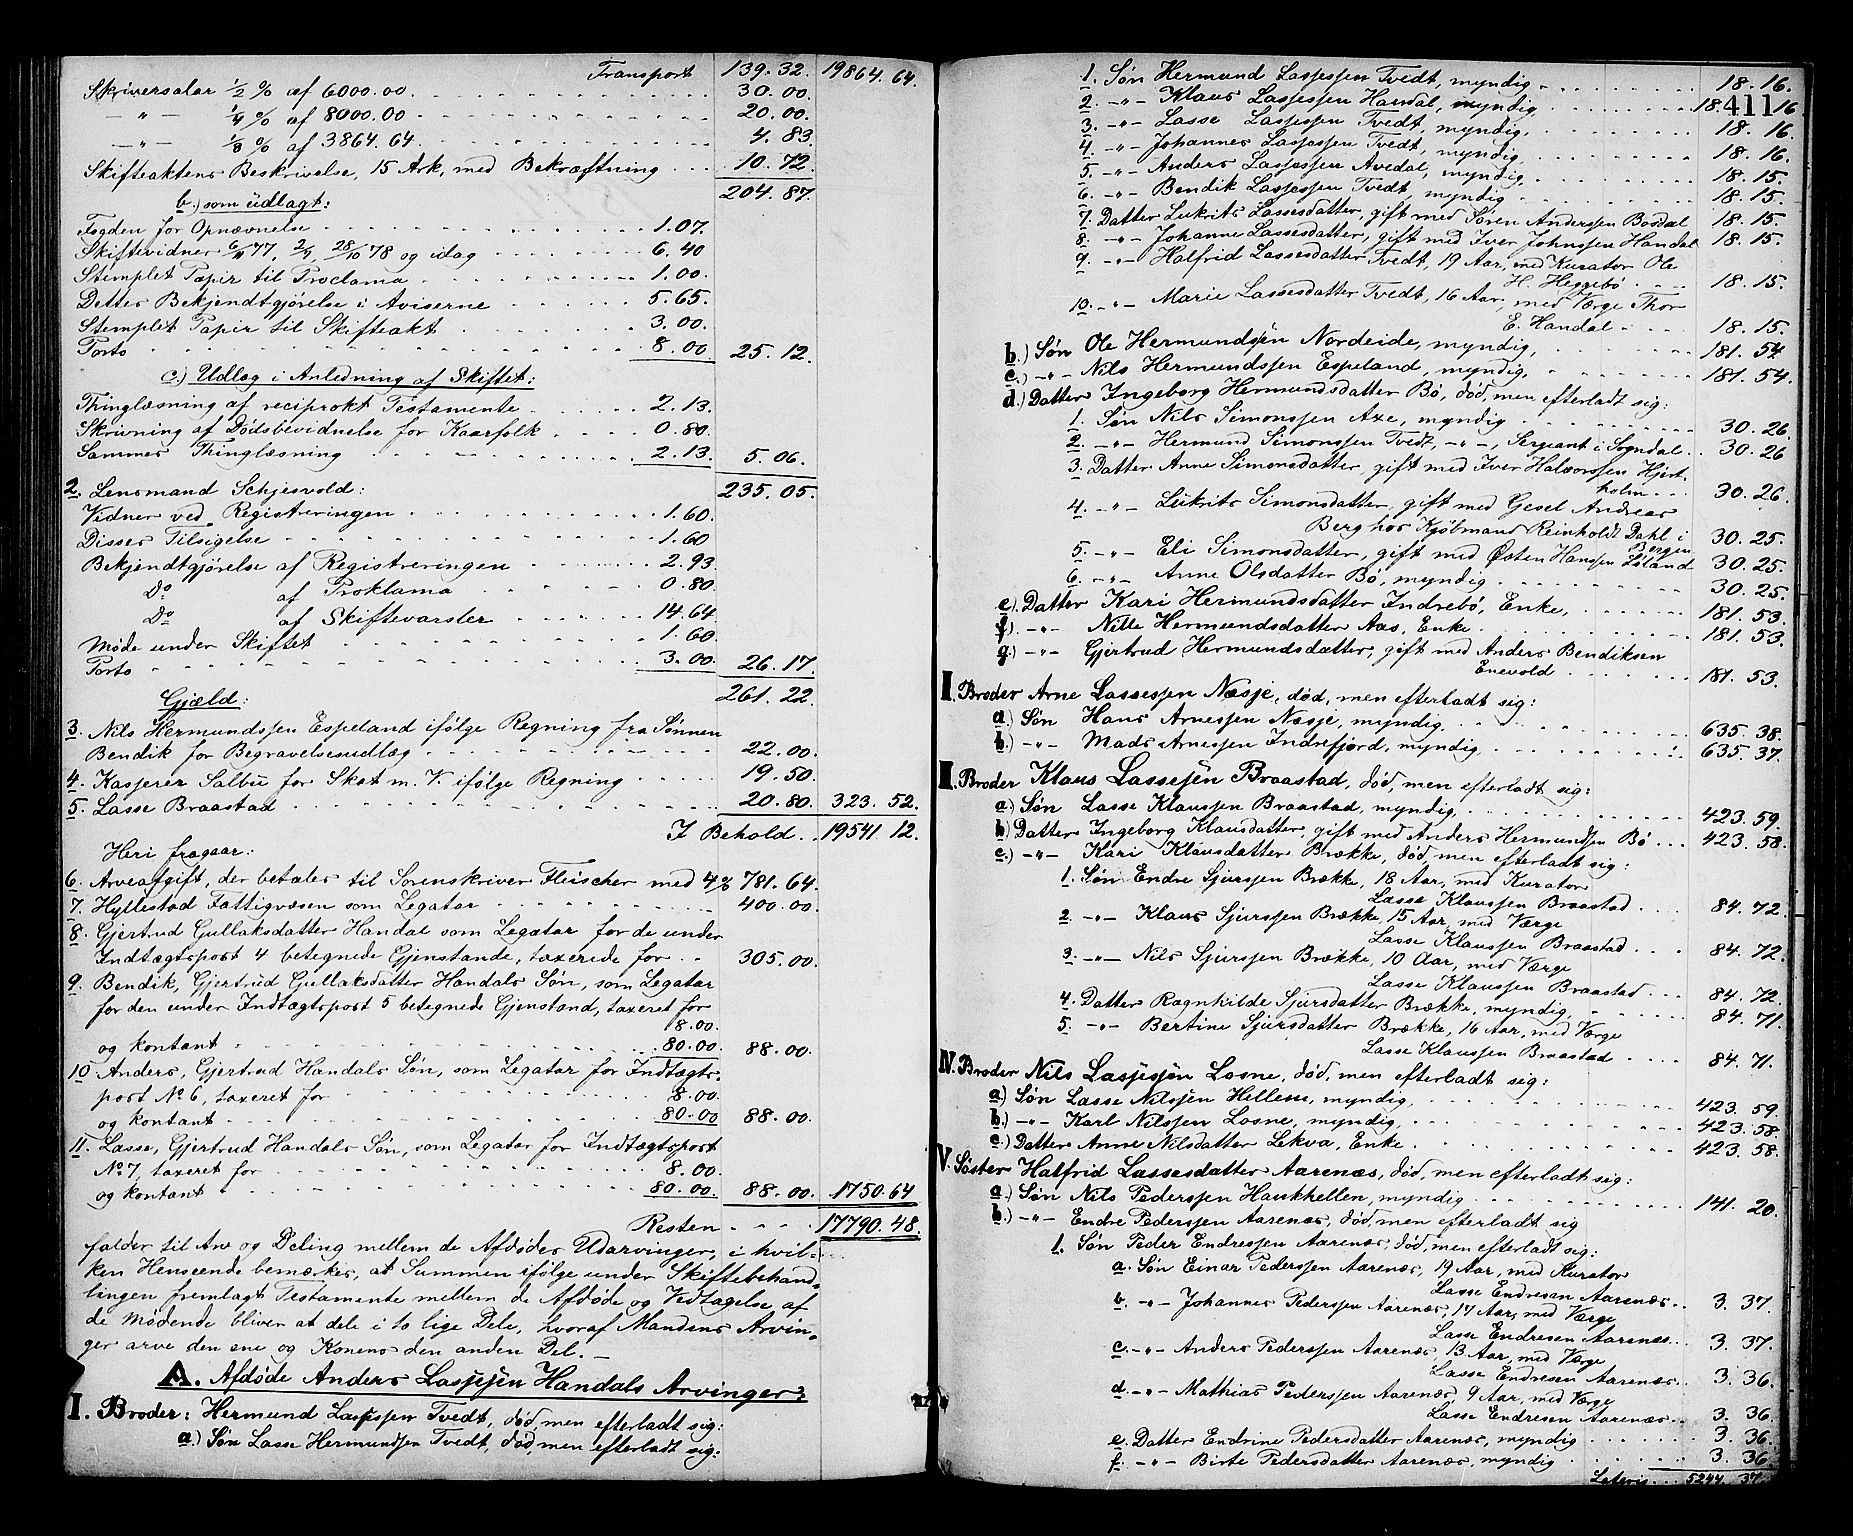 Transport 139. 32. 19864. 64.
Skriversalar 1/2 % af 6000.00. 30. 00.
— " — 1/4 % af 8000.00 20. 00.
— " — 1/8 % af 3864.64. 4. 83.
Skifteaktens Beskrivelse, 15 Ark, med Bekræftning 10. 72.
204. 87.
b.) som udlagt:
Fogden for Opnævnelse 1.07.
Skiftevidner 6/11 77, 2/4, 28/10 78 og idag 6. 40
Stemplet Papir til Proclama 1. 00.
Dettes Bekjendtgjørelse i Aviserne 5. 65.
Stemplet Papir til Skifteakt 3. 00.
Porto 8. 00 25. 12.
c.) Udlæg i Anledning af Skiftet:
Thinglæsning af reciprokt Testamente 2. 13.
Skrivning af Dødsbevidnelse for Kaarfolk 0. 80.
Sammes Thinglæsning 2. 13. 5. 06.
235. 05.
2. Lensmand Schjesvold:
Vidner ved Registreringen 1. 60.
Disses Tilsigelse 1. 60
Bekjendtgjørelse af Registreringen 2. 93
Do af Proklama 0. 80
Do af Skiftevarsler 14. 64
Møde under Skiftet 1. 60
Porto 3. 00. 26. 17.
261. 22.
Gjæld:
3. Nils Hermundssen Espeland ifølge Regning fra Sønnen
Bendik for Begravelsesudlæg 22. 00.
4. Kasserer Salbu for Skat m. V. ifølge Regning 19. 50.
5. Lasse Braastad 20. 80. 323. 52.
I Behold 19541. 12.
Heri fragaar:
6. Arveafgift, der betales til Sorenskriver Fleischer med 4% 781. 64.
7. Hyllestad Fattigvæsen som Legatar 400. 00.
8. Gjertrud Gullaksdatter Handal som Legatar for de under
Indtægtspost 4 betegnede Gjenstande, taxerede for 305. 00.
9. Bendik, Gjertrud Gullaksdatter Handals Søn, som Legatar
for den under Indtægtspost 5 betegnede Gjenstand, taxeret for
8. 00.
og kontant 80. 00. 88. 00.
10. Anders, Gjertrud Handals Søn, som Legatar for Indtægts-
post No 6, taxeret for 8. 00.
og kontant 80. 00 88. 00.
11. Lasse, Gjertrud Handals Søn, som Legatar for Indtægtspost
No 7, taxeret for 8. 00.
og kontant 80. 00. 88. 00. 1750. 64
Resten 17790. 48.
falder til Arv og Deling mellem de Afdødes Udarvinger, i hvil-
ken Henseende bemærkes, at Summen ifølge under Skiftebehand-
lingen fremlagt Testamente mellem de Afdøde og Vedtagelse af
de Mødende bliver at dele i to lige Dele, hvoraf Mandens Arvin-
ger arve den ene og Konens den anden Del. —
A. Afdøde Anders Lassesen Handals Arvinger:
I. Broder: Hermund Lassessen Tvedt, død, men efterladt sig:
a.) Søn Lasse Hermundssen Tvedt, død, men efterladt sig:
411
1. Søn Hermund Lassessen Tvedt, myndig 18. 16.
2. — " — Klaus Lassessen Handal, myndig 18. 16
3. — " — Lasse Lassessen Tvedt, myndig 18. 16
4. — " — Johannes Lassessen Tvedt, myndig 18. 16.
5. — " — Anders Lassessen Avedal, myndig 18. 15.
6. — " — Bendik Lassessen Tvedt, myndig 18. 15.
7. Datter Lukrits Lassesdatter, gift med Søren Anderssen Bosdal 18. 15
8. — " — Johanne Lassesdatter, gift med Iver Johnssen Handal 18. 15.
9. — " — Halfrid Lassesdatter Tvedt, 19 Aar, med Kurator Ole
H. Heggebø 18. 15.
10. — " — Marie Lassesdatter Tvedt, 16 Aar, med Værge Thor
E. Handal 18. 15.
b.) Søn Ole Hermundssen Nordeide, myndig, 181. 54.
c.) — " — Nils Hermundssen Espeland, myndig, 181. 54.
d.) Datter Ingeborg Hermundsdatter Bø, død, men efterladt sig:
1. Søn Nils Simonssen Axe, myndig 30. 26.
2. — " — Hermund Simonssen Tvedt, — " —, Sergeant i Sogndal 30. 26
3. Datter Anne Simonsdatter, gift med Iver Halvorssen Hjort-
holm 30. 26
4. — " — Lukrits Simonsdatter, gift med Gesel Andreas
Berg hos Kjøbmand Reinholdt Dahl i
Bergen 30. 25.
5. — " — Eli Simonsdatter, gift med Østen Hansen Eiland 30. 25.
6. — " — Anne Olsdatter Bø, myndig 30. 25
e.) Datter Kari Hermundsdatter Indrebø, Enke, 181. 53.
f.) — " — Nille Hermundsdatter Aas, Enke 181. 53.
g.) — " — Gjertrud Hermundsdatter, gift med Anders Bendiksen
Enevold 181. 53.
II. Broder Arne Lassessen Næsje, død, men efterladt sig:
a.) Søn Hans Arnessen Næsje, myndig, 635. 38.
b.) — " — Mads Arnessen Indrefjord, myndig, 635. 37.
III. Broder Klaus Lassesen Braastad, død, men efterladt sig:
a.) Søn Lasse Klaussen Braastad, myndig, 423. 59.
b.) Datter Ingeborg Klausdatter, gift med Anders Hermundsen Bø 423. 58.
c.) — " — Kari Klausdatter Brække, død, men efterladt sig:
1. Søn Endre Sjurssen Brække, 18 Aar, med Kurator
Lasse Klaussen Braastad 84. 72.
2. — " — Klaus Sjurssen Brække, 15 Aar, med Værge
Lasse Klaussen Braastad 84. 72.
3. — " — Nils Sjurssen Brække, 10 Aar, med Værge
Lasse Klaussen Braastad 84. 72.
4. Datter Ragnhilde Sjursdatter Brække, myndig, 84. 71.
5. — " — Bertine Sjursdatter Brække, 16 Aar, med Værge
Lasse Klaussen Braastad 84. 71.
IV. Broder Nils Lassesen Losne, død, men efterladt sig:
a.) Søn Lasse Nilssen Hellem, myndig, 423. 59
b.) — " — Karl Nilssen Losne, myndig, 423. 58.
c.) Datter Anne Nilsdatter Lekva, Enke 423. 58.
V. Søster Halfrid Lassesdatter Aarenæs, død, men efterladt sig:
a.) Søn Nils Pederssen Haukhellen, myndig 141. 20.
b.) — " — Endre Pederssen Aarenæs, død, men efterladt sig
1. Søn Peder Endressen Aarenæs, død, men efterladt sig:
a. Søn Einar Pederssen Aarenæs, 19 Aar, med Kurator
Lasse Endresen Aarenæs 3. 37.
b. — " — Johannes Pederssen Aarenæs, 17 Aar, med Værge
Lasse Endresen Aarenæs 3. 37.
c. — " — Anders Pederssen Aarenæs, 13 Aar, med Værge
Lasse Endresen Aarenæs 3. 36.
d. — " — Mathias Pederssen Aarenæs, 9 Aar, med Værge
Lasse Endresen Aarenæs 3. 36
e. Datter Endrine Pedersdatter Aarenæs, myndig 3. 36.
f. — " — Birte Pedersdatter Aarenæs, myndig 3. 36
Lateris 5244. 37.